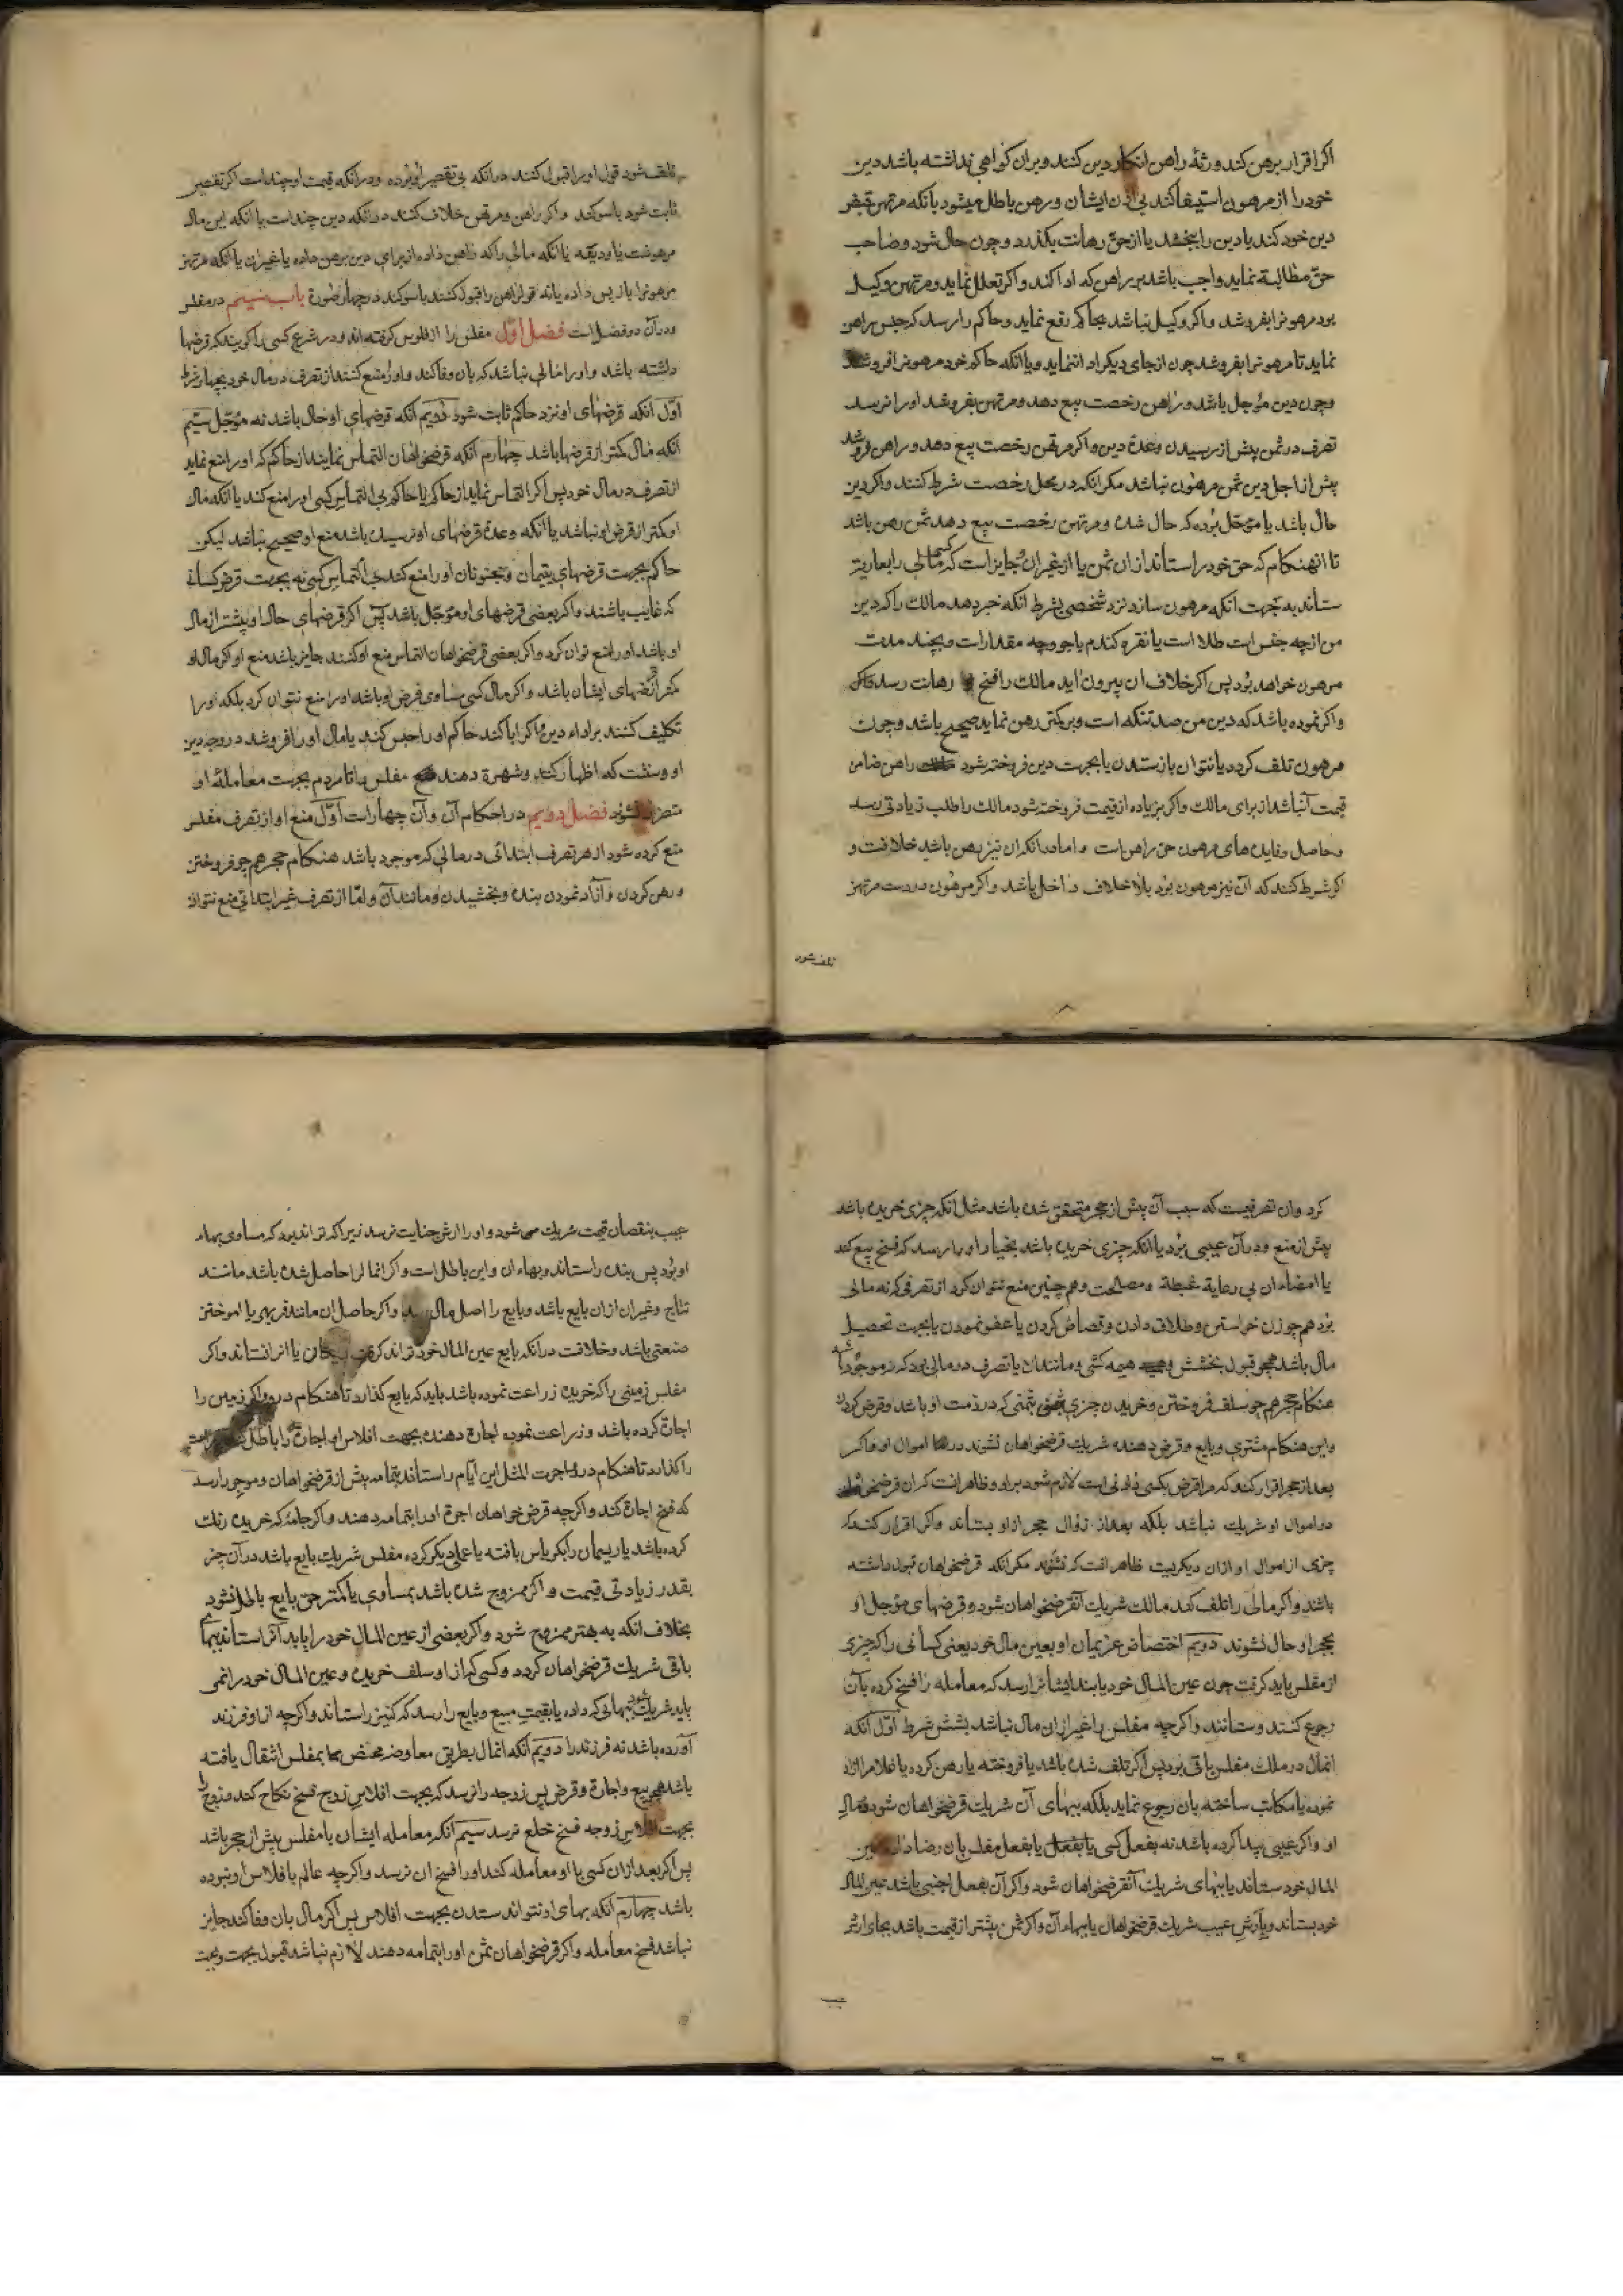 اکر اقرار برهن کند ورثهٔ راهن انکار دین کنند و بران کواهی نداشته باشد دین
خود را از مرهون استیفا کند بی اذن ایشان و رهن باطل میشود بانکه مرتهن قبض
دین خود کند یا دین را ببخشد یا از حق رهانت بکذرد و چون حال شود و صاحب
حق مطالبة نماید واجب باشد بر راهن که ادا کند و اکر تعلل نماید و مرتهن وکیل
بود مرهونرا بفروشد و اکر وکیل نباشد بحاکم رفع نماید و حاکم را رسد که حبس راهن
نماید تا مرهونرا بفروشد چون از جای دیکر ادا ننماید و یا انکه حاکم خود مرهونرا فروشد
و چون دین مؤجل باشد و راهن رخصت بیع دهد و مرتهن بفروشد او را نرسد
تصرف در ثمن پیش از رسیدن وعدهٔ دین و اکر مرتهن رخصت بیع دهد و راهن فروشد
پیش از اجل دین ثمن مرهون نباشد مکر انکه در محل رخصت شرط کنند و اکر دین
حال باشد یا مؤجل بوده که حال شده و مرتهن رخصت بیع دهد ثمن رهن باشد
تا انهنکام که حق خود را ستاند از ان ثمن یا از غیر ان و جایز است که کسی مالی را بعاریة
ستاند به جهت انکه مرهون سازد نزد شخصی بشرط انکه خبر دهد مالک را که دین
من از چه جنس است طلا است یا نقره کندم یا جو و چه مقدار است و بچند مدت
مرهون خواهد بود پس اکر خلاف ان بیرون اید مالک را فسخ رهانت رسد
و اکر نموده باشد که دین من صد تنکه است و بر کمتر رهن نماید صحیح باشد و چون
مرهون تلف کردد یا نتوان بازستدن یا بجهت دین فروخته شود راهن ضامن
قیمت آن باشد از برای مالک و اکر بزیاده از قیمت فروخته شود مالک را طلب زیادتی رسد
و حاصل و فایده های مرهون حق راهن است و اما در انکه ان نیز رهن باشد خلافست و
اکر شرط کنند که آن نیز مرهون بود بلا خلاف داخل باشد و اکر مرهون در دست مرتهن
تلف شود
تلف شود قول او را قبول کنند در انکه بی تقصیر او بوده و در انکه قیمت او چند است اکر تقصیر
ثابت شود با سوکند و اکر راهن و مرتهن خلاف کنند در انکه دین چند است یا انکه این مال
مرهونست یا ودیعه یا انکه مالی را که راهن داده از برای دین برهن داده یا غیر ان یا انکه مرتهن
مرهونرا باز پس داده یا نه قول راهن را قبول کنند با سوکند در چهار صورة باب در مفلس
و در آن دو فصل است فصل اول مفلس را از فلوس کرفته اند و در شرع کسی را کویند که قرضها
داشته باشد و او را مالی نباشد که بان وفا کند و او را منع کنند از تصرف در مال خود بچهار شرط
اول انکه قرضهای او نزد حاکم ثابت شود دویم انکه قرضهای او حال باشد نه مؤجل سیم
انکه مال کمتر از قرضها باشد چهارم انکه قرضخواهان التماس نمایند از حاکم که او را منع نماید
از تصرف در مال خود پس اکر التماس نماید از حاکم یا حاکم بی التماس کسی او را منع کند یا انکه مال
او کمتر از قرض او نباشد یا انکه وعدهٔ قرضهای او نرسیده باشد منع او صحیح نباشد لیکن
حاکم بجهت قرضهای یتیمان و مجنونان او را منع کند بی التماس کسی نه بجهت قرض کسانی
که غایب باشند و اکر بعضی قرضهای او مؤجل باشد پس اکر قرضهای حال او بیشتر از مال
او باشد او را منع توان کرد و اکر بعضی قرضخواهان التماس منع او کنند جایز باشد منع او کر مال او
کمتر از قرضهای ایشان باشد و اکر مال کسی مساوی قرض او باشد او را منع نتوان کرد بلکه او را
تکلیف کنند بر اداء دین و اکر ابا کند حاکم او را حبس کند یا مال او را فروشد در وجه دین
او و سنت که اظهار کنند و شهرة دهند مفلس را تا مردم بجهت معاملهٔ او
متضرر نشوند فصل دویم در احکام آن و آن چهار است اول منع او از تصرف مفلس
منع کرده شود از هر تصرف ابتدائی در مالی که موجود باشد هنکام حجر همچو فروختن
و رهن کردن و آزاد نمودن بنده و بخشیدن و مانند آن و اما از تصرف غیر ابتدائی منع نتوان
کرد و ان تصرفیست که سبب آن پیش از حجر متحقق شده باشد مثل انکه چیزی خریده باشد
پیش از منع و در آن عیبی بود یا انکه چیزی خریده باشد بخیار او را رسد که فسخ بیع کند
یا امضاء ان بی رعایة غبطة و مصلحت و همچنین منع نتوان کرد از تصرفی که نه مالی
بود همچو زن خواستن و طلاق دادن و قصاص کردن یا عفو نمودن یا بجهت تحصیل
مال باشد همچو قبول بخشش و هیمه کشی و مانند ان یا تصرف در مالی بود که نه موجود باشد
هنکام حجر همچو سلف فروختن و خریدن چیزی بثمنی که در ذمت او باشد و قرض کردن
و این هنکام مشتری و بایع و قرض دهنده شریک قرضخواهان نشوند در اموال او و اکر
بعد از حجر اقرار کند که مرا قرض بکسی دادنی است لازم شود بر او و ظاهرانست که ان قرضخواه
در اموال او شریک نباشد بلکه بعد از زوال حجر از او بستاند و اکر اقرار کند که
چیزی از اموال او ازان دیکریست ظاهرانست که نشنوند مکر انکه قرضخواهان قبول داشته
باشند و اکر مالی را تلف کند مالک شریک آن قرضخواهان شود و قرضهای مؤجل او
بحجر او حال نشوند دویم اختصاص غریمان او بعین مال خود یعنی کسانی را که چیزی
از مفلس باید کرفت چون عین المال خود یابند ایشانرا رسد که معامله را فسخ کرده بآن
رجوع کنند و ستانند و اکرچه مفلس را غیر از ان مال نباشد بشش شرط اول انکه
انمال در ملک مفلس باقی بود پس اکر تلف شده باشد یا فروخته یا رهن کرده یا غلام را ازاد
نموده یا مکاتب ساخته بان رجوع ننماید بلکه ببهای آن شریک قرضخواهان شود در مال
او و اکر عیبی پیدا کرده باشد نه بفعل کسی یا بفعل مفلس بان رضا داده عین
المال خود ستاند یا ببهای شریک آن قرضخواهان شود و اکر آن بفعل اجنبی باشد عین المال
خود بستاند و بارش عیب شریک قرضخواهان یا ببهاء آن و اکر ثمن بیشتر از قیمت باشد بجای ارش
عیب
عیب بنقصان قیمت شریک می شود و او را ارش جنایت نرسد زیرا که تواند بود که مساوی بهاء
او بود پس بنده را ستاند و بهاء ان و این باطل است و اکر انمال را حاصل شده باشد مانند
نتاج و غیر ان ازان بایع باشد و بایع را اصل مال رسد و اکر حاصل ان مانند فربهی یا اموختن
صنعتی باشد و خلافست در انکه بایع عین المال خود تواند یا انرا نستاند و اکر
مفلس زمینی را که خریده زراعت نموده باشد باید که بایع کذارد تا هنکام درو و اکر زمین را
اجارة کرده باشد و زراعت نموده اجارة دهنده بجهت افلاس او اجارة را باطل
را کذارد تا هنکام درو و اجرت المثل این ایام را ستاند بتمامه پیش از قرضخواهان و موجر را رسد
که فسخ اجارة کند و اکرچه قرض خواهان اجرة او را بتمامه دهند و اکر جامهٔ که خریده رنک
کرده باشد یا ریسمان را کرباس بافته یا عملی دیکر کرده مفلس شریک بایع باشد در آن چیز
بقدر زیادتی قیمت و اکر ممزوج شده باشد بمساوی یا کمتر حق بایع باطل نشود
بخلاف انکه به بهتر ممزوج شود و اکر بعضی از عین المال خود را یابد آنرا ستاند و ببهاء
باقی شریک قرضخواهان کردد و کسی که از او سلف خریده و عین المال خود را نمی
یابد شریک شود ببهائی که داده یا بقیمت مبیع و بایع را رسد که کنیز را ستاند و اکرچه از او فرزند
آورده باشد نه فرزند را دویم آنکه انمال بطریق معاوضهٔ محض بمفلس انتقال یافته
باشد همچو بیع و اجارة و قرض پس زوجه را نرسد که بجهت افلاس زوج فسخ نکاح کند و زوج را
بجهت افلاس زوجه فسخ خلع نرسد سیم آنکه معاملهٔ ایشان با مفلس پیش از حجر باشد
پس اکر بعد ازان کسی با او معامله کند او را فسخ ان نرسد و اکرچه عالم بافلاس او نبوده
باشد چهارم آنکه بهای او نتواند ستدن بجهت افلاس پس اکر مال بان وفا کند جایز
نباشد فسخ معامله و اکر قرضخواهان ثمن او را بتمامه دهند لازم نباشد قبول بجهت